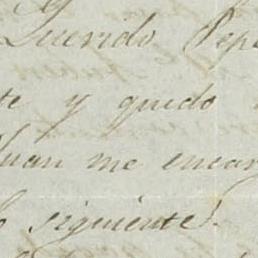 Querido Pepe
te y quedo
Juan me encar
siguiente.